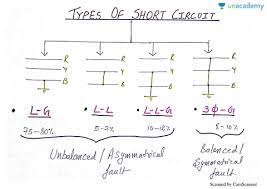 unacademy
TYPES OF SHORT CIRCUIT
R R R R
Y Y Y Y
B B B B
• L-G • L-L • L-G • 3Φ-G
75-80% 5-7% 10-12% 8-10%
Unbalanced / Asymmetrical fault
Balanced / Symmetrical fault
Scanned by CamScanner